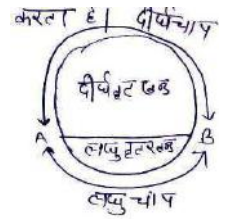 करता है | दीर्घचाप
दीर्घवृतखंड
A B
लघुवृतखंड
लघु चाप